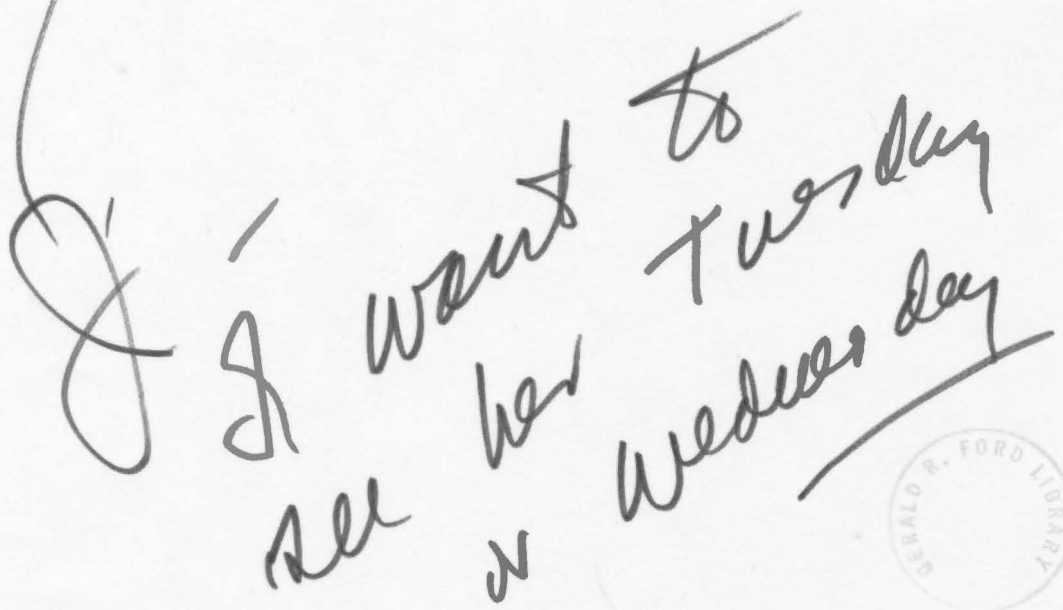 J—
I want to
see her Tuesday
or Wednesday
GERALD R. FORD LIBRARY